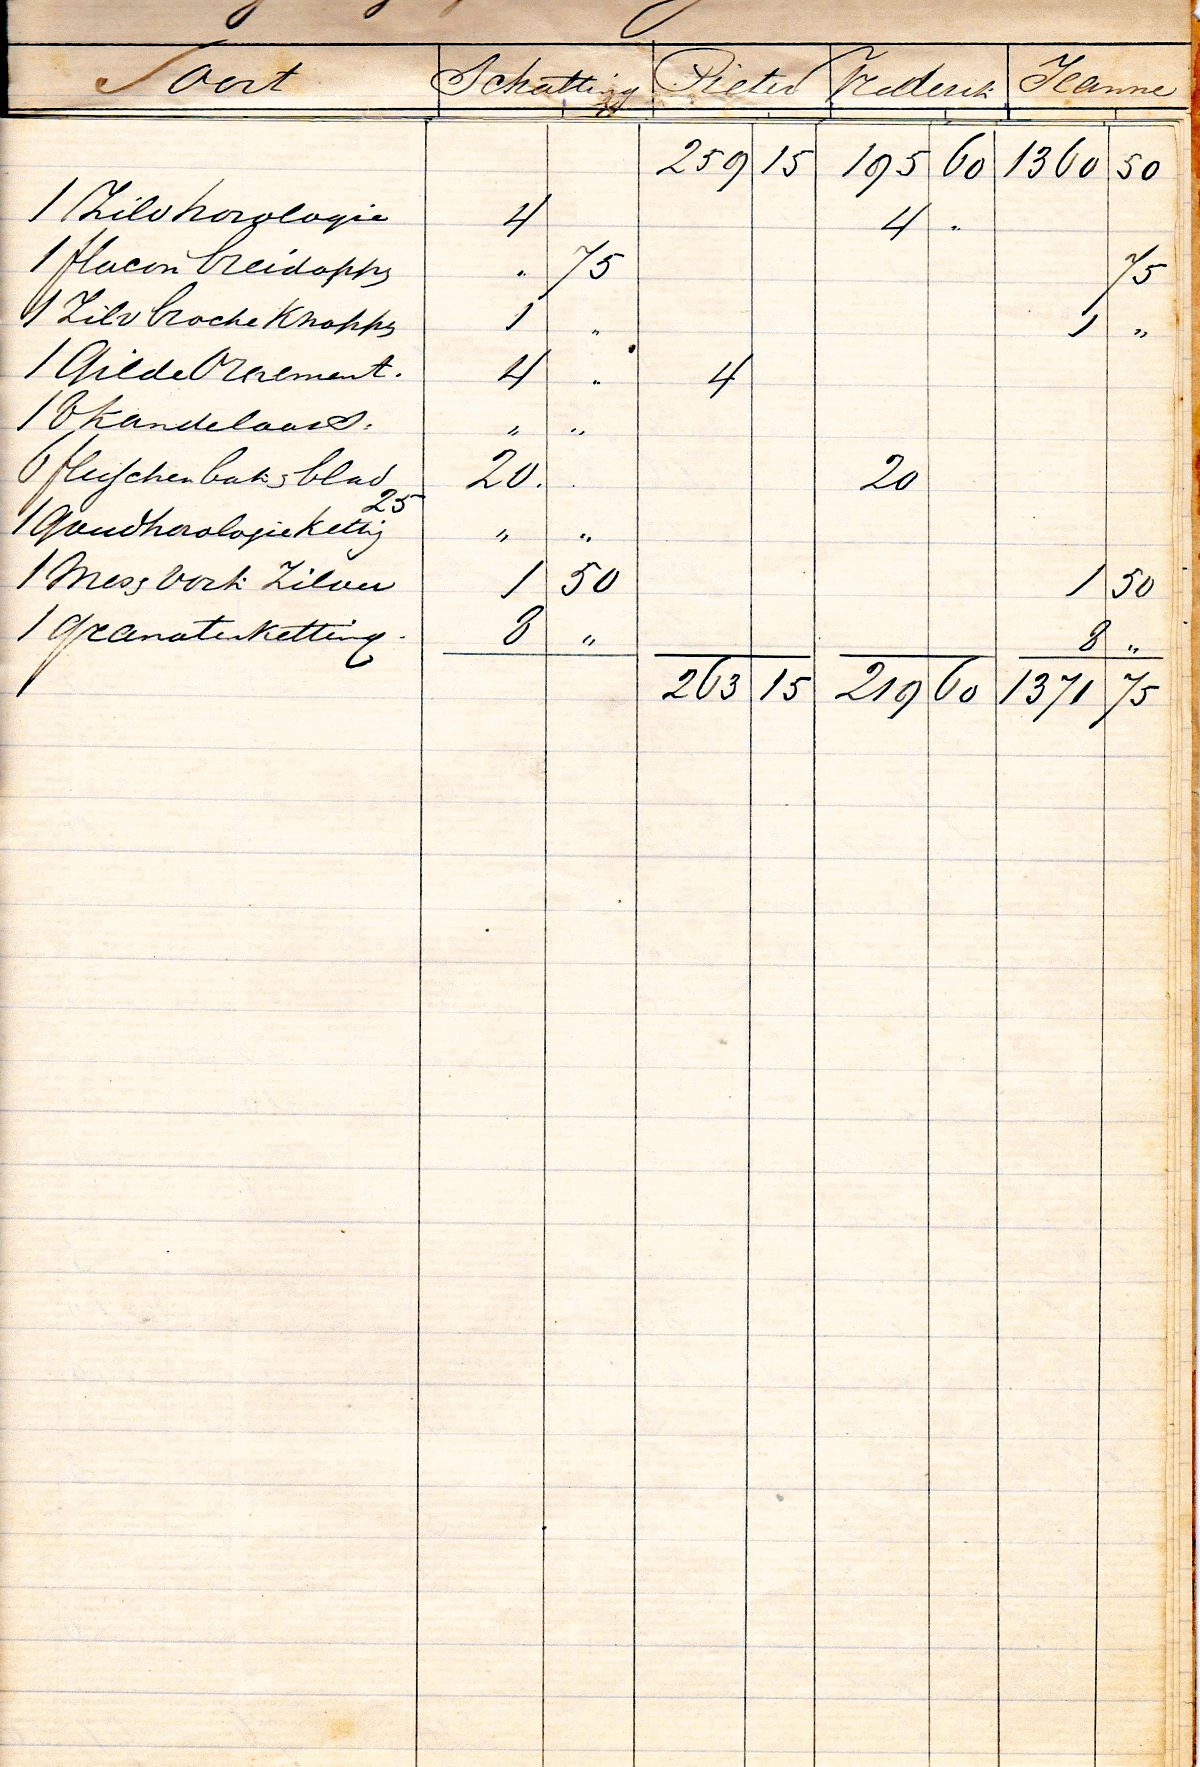 Soort Schatting Pieter Frederik Jeanne
259 15 195 60 1360 50
1 Zilv horologie 4 4 "
1 flacon breidopps " 75 75
1 Zilv broche Knopps 1 " 1 "
1 Gilde Ornement. 4 " 4
1 B Kandelaars. " "
6 flesschenbak s blad 20. 20
25
1 Goud horologieketting " "
1 Mes s vork Zilver 1 50 1 50
1 Granatenketting. 8 " 8 "
263 15 219 60 1371 75